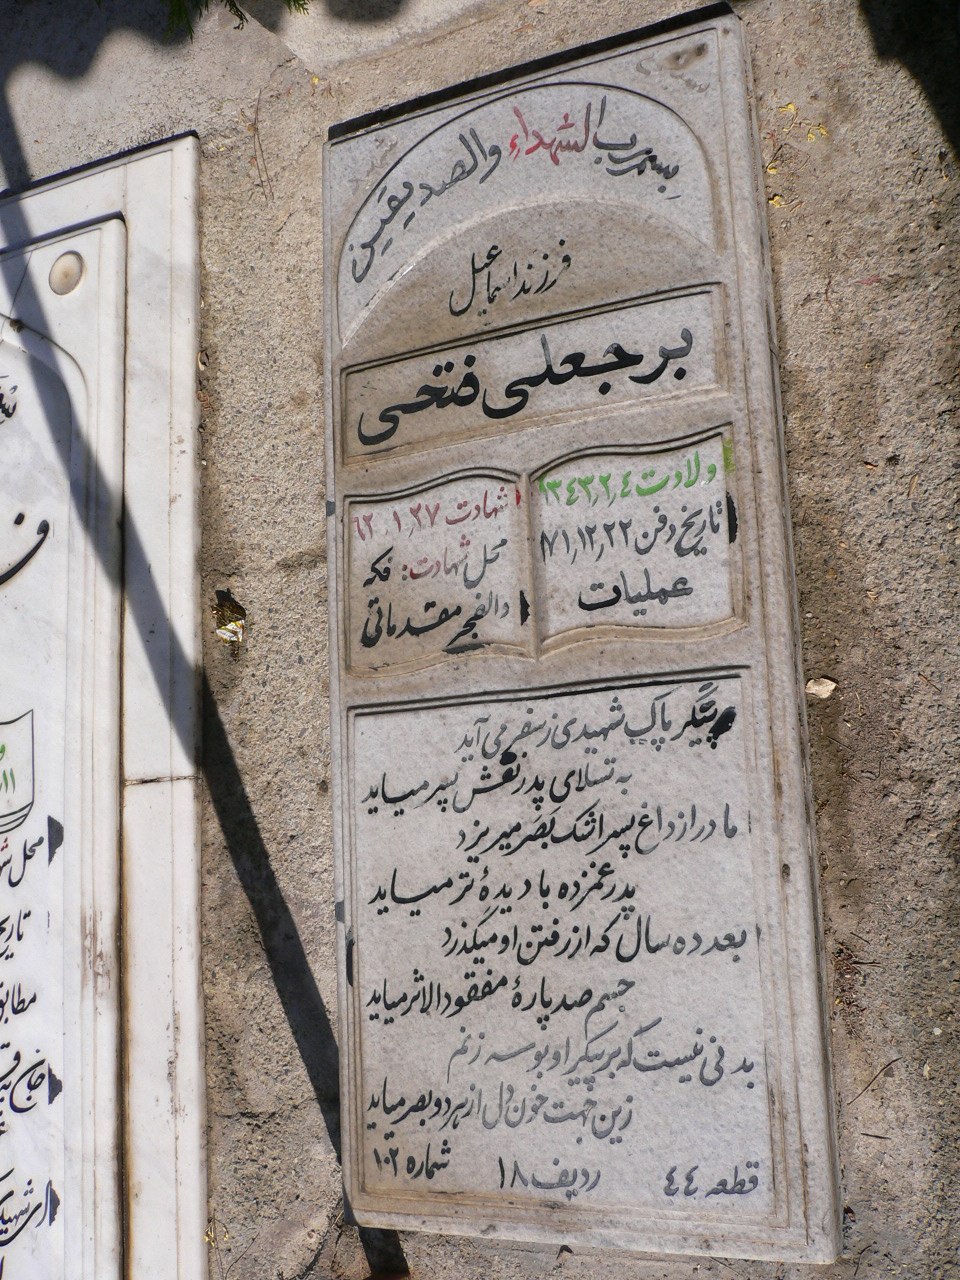 بسم رب الشهداء والصدیقین
فرزند اسماعیل
برجعلی فتحی
ولادت ۱۳۴۳٫۲٫۴
تاریخ دفن ۷۱٫۱۲٫۲۲
عملیات
شهادت ۶۲٫۱٫۲۷
محل شهادت: فکه
والفجر مقدماتی
پیکر پاک شهیدی ز سفر می آید
به تسلای پدر نعش پسر میاید
مادر از داغ پسر اشک بصر میریزد
پدر غمزده با دیدهٔ تر میاید
بعد ده سال که از رفتن او میگذرد
جسم صد پارهٔ مفقودالاثر میاید
بدنی نیست که بر پیکر او بوسه زنم
زین جهت خون دل از هر دو بصر میاید
قطعه ۴۴ ردیف ۱۸ شماره ۱۰۲
محل
مطابق